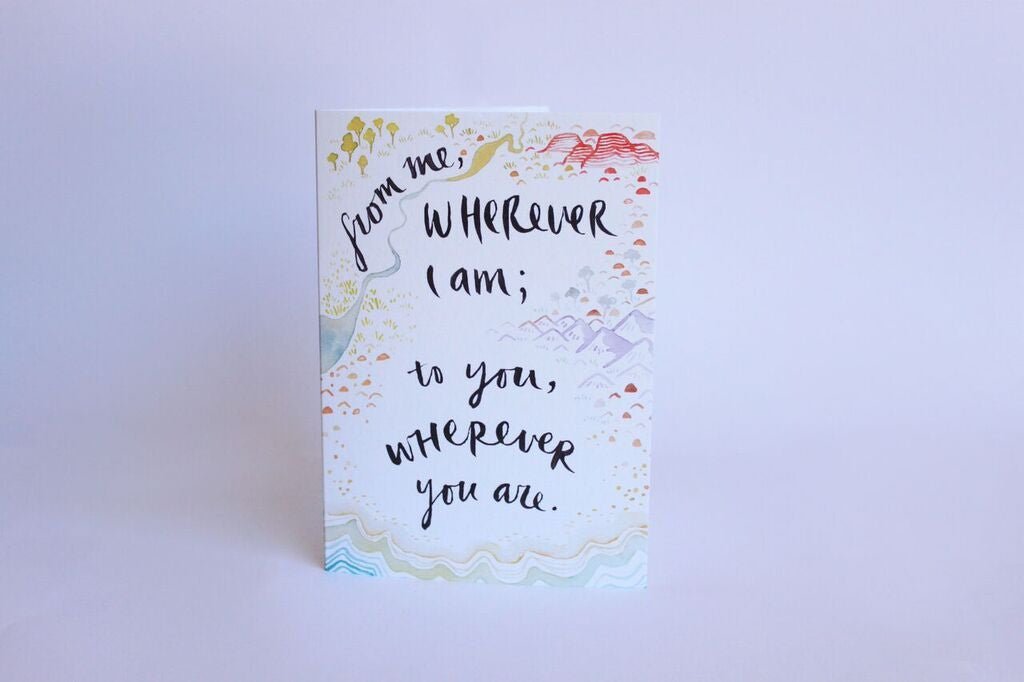 from me,
WHEREVER
I am;
to you,
WHEREVER
you are.